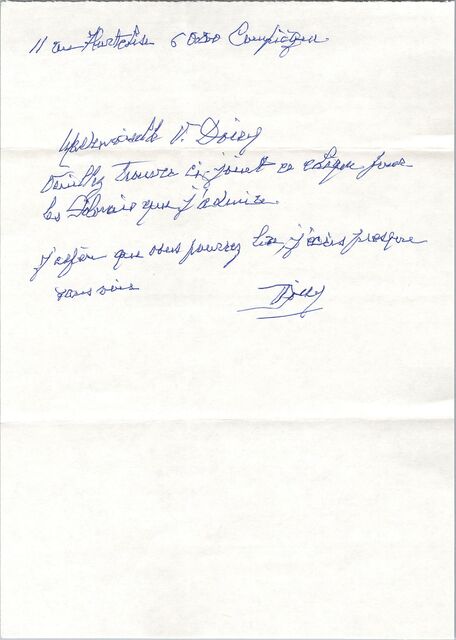 11 60200 Compiègne
Mademoiselle V. Doisy
Veuillez trouver ci-joint ce chèque pour
les que j'admire
j'espère que vous pourrez lire, j'écris presque
sans voir
Doisy